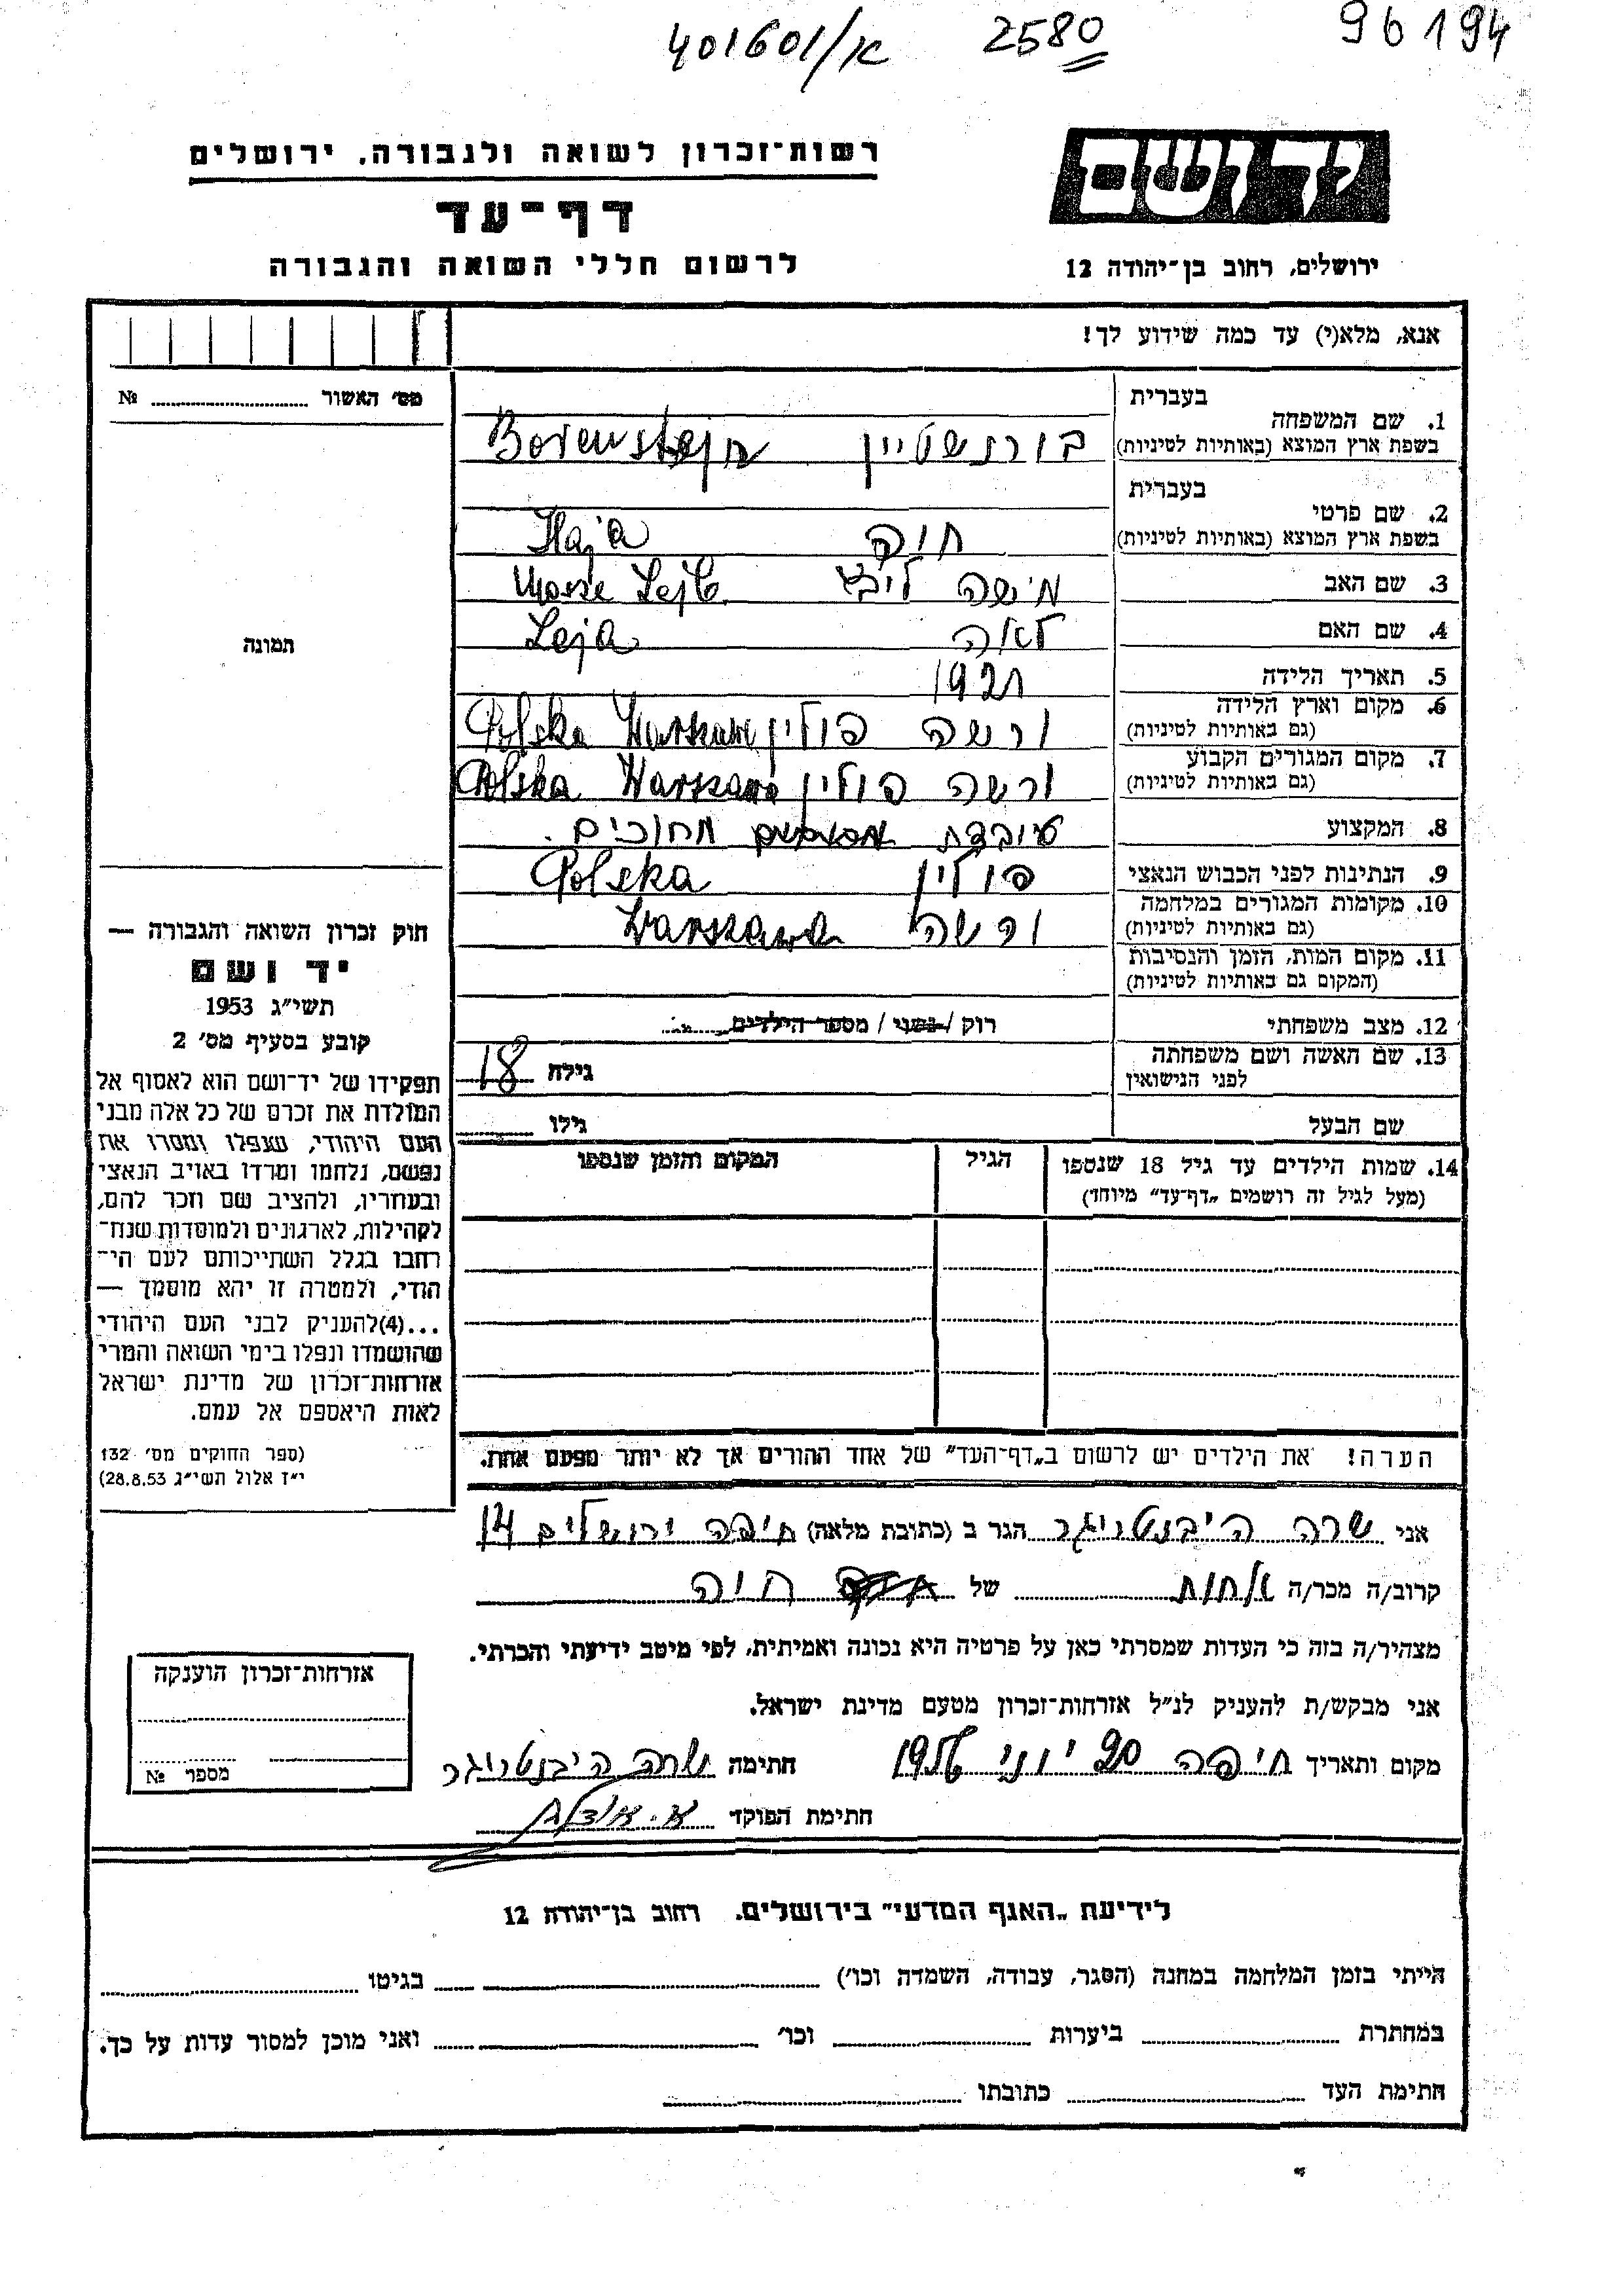 401601/א 2580 96194
יד ושם
רשות-זכרון לשואה ולגבורה. ירושלים
דף-עד
ירושלים, רחוב בן-יהודה 12
לרשום חללי השואה והגבורה
אנא, מלא(י) עד כמה שידוע לך!
מס' האשור № 
בעברית
1. שם המשפחה
בשפת ארץ המוצא (באותיות לטיניות)
בורנשטיין Borenstejn
בעברית
2. שם פרטי
בשפת ארץ המוצא (באותיות לטיניות)
חיה Haja
3. שם האב
משה לייב
4. שם האם לאה Leja
5. תאריך הלידה 1921
6. מקום וארץ הלידה
(גם באותיות לטיניות)
ורשה פולין Warszawa Polska
7. מקום המגורים הקבוע
(גם באותיות לטיניות)
ורשה פולין Warszawa Polska
8. המקצוע עובדת מחוכים.
9. הנתינות לפני הכבוש הנאצי פולין Polska
10. מקומות המגורים במלחמה
(גם באותיות לטיניות)
ורשה Warszawa
11. מקום המות, הזמן והנסיבות
(המקום גם באותיות לטיניות)
12. מצב משפחתי רוק / נשוי / מספר הילדים
13. שם האשה ושם משפחתה
לפני הנישואין
גילה 18
שם הבעל גילו
14. שמות הילדים עד גיל 18 שנספו
(מעל לגיל זה רושמים „דף-עד” מיוחד)
הגיל
המקום והזמן שנספו
תמונה
חוק זכרון השואה והגבורה —
יד ושם
תשי"ג 1953
קובע בסעיף מס' 2
תפקידו של יד-ושם הוא לאסוף אל
המולדת את זכרם של כל אלה מבני
העם היהודי, שנפלו ומסרו את
נפשם, נלחמו ומרדו באויב הנאצי
ובעוזריו, ולהציב שם וזכר להם,
לקהילות, לארגונים ולמוסדות שנח-
רבו בגלל השתייכותם לעם הי-
הודי, ולמטרה זו יהא מוסמך —
...(4)להעניק לבני העם היהודי
שהושמדו ונפלו בימי השואה והמרי
אזרחות-זכרון של מדינת ישראל
לאות היאספם אל עמם.
(ספר החוקים מס' 132
י"ז אלול תשי"ג 28.8.53)
הערה! את הילדים יש לרשום ב„דף-העד” של אחד ההורים אך לא יותר מפעם אחת.
אני שרה הגר ב (כתובת מלאה) חיפה ירושלים 14
קרוב/ה מכר/ה אחות של חיה
מצהיר/ה בזה כי העדות שמסרתי כאן על פרטיה היא נכונה ואמיתית, לפי מיטב ידיעתי והכרתי.
אני מבקש/ת להעניק לנ"ל אזרחות-זכרון מטעם מדינת ישראל.
מקום ותאריך חיפה 20 יוני 1956 חתימה שרה
חתימת הפוקד
אזרחות-זכרון הוענקה
מספר №
לידיעת „האגף המדעי” בירושלים. רחוב בן-יהודה 12
הייתי בזמן המלחמה במחנה (הסגר, עבודה, השמדה וכו') בגיטו
במחתרת ביערות וכו' ואני מוכן למסור עדות על כך.
חתימת העד כתובתו